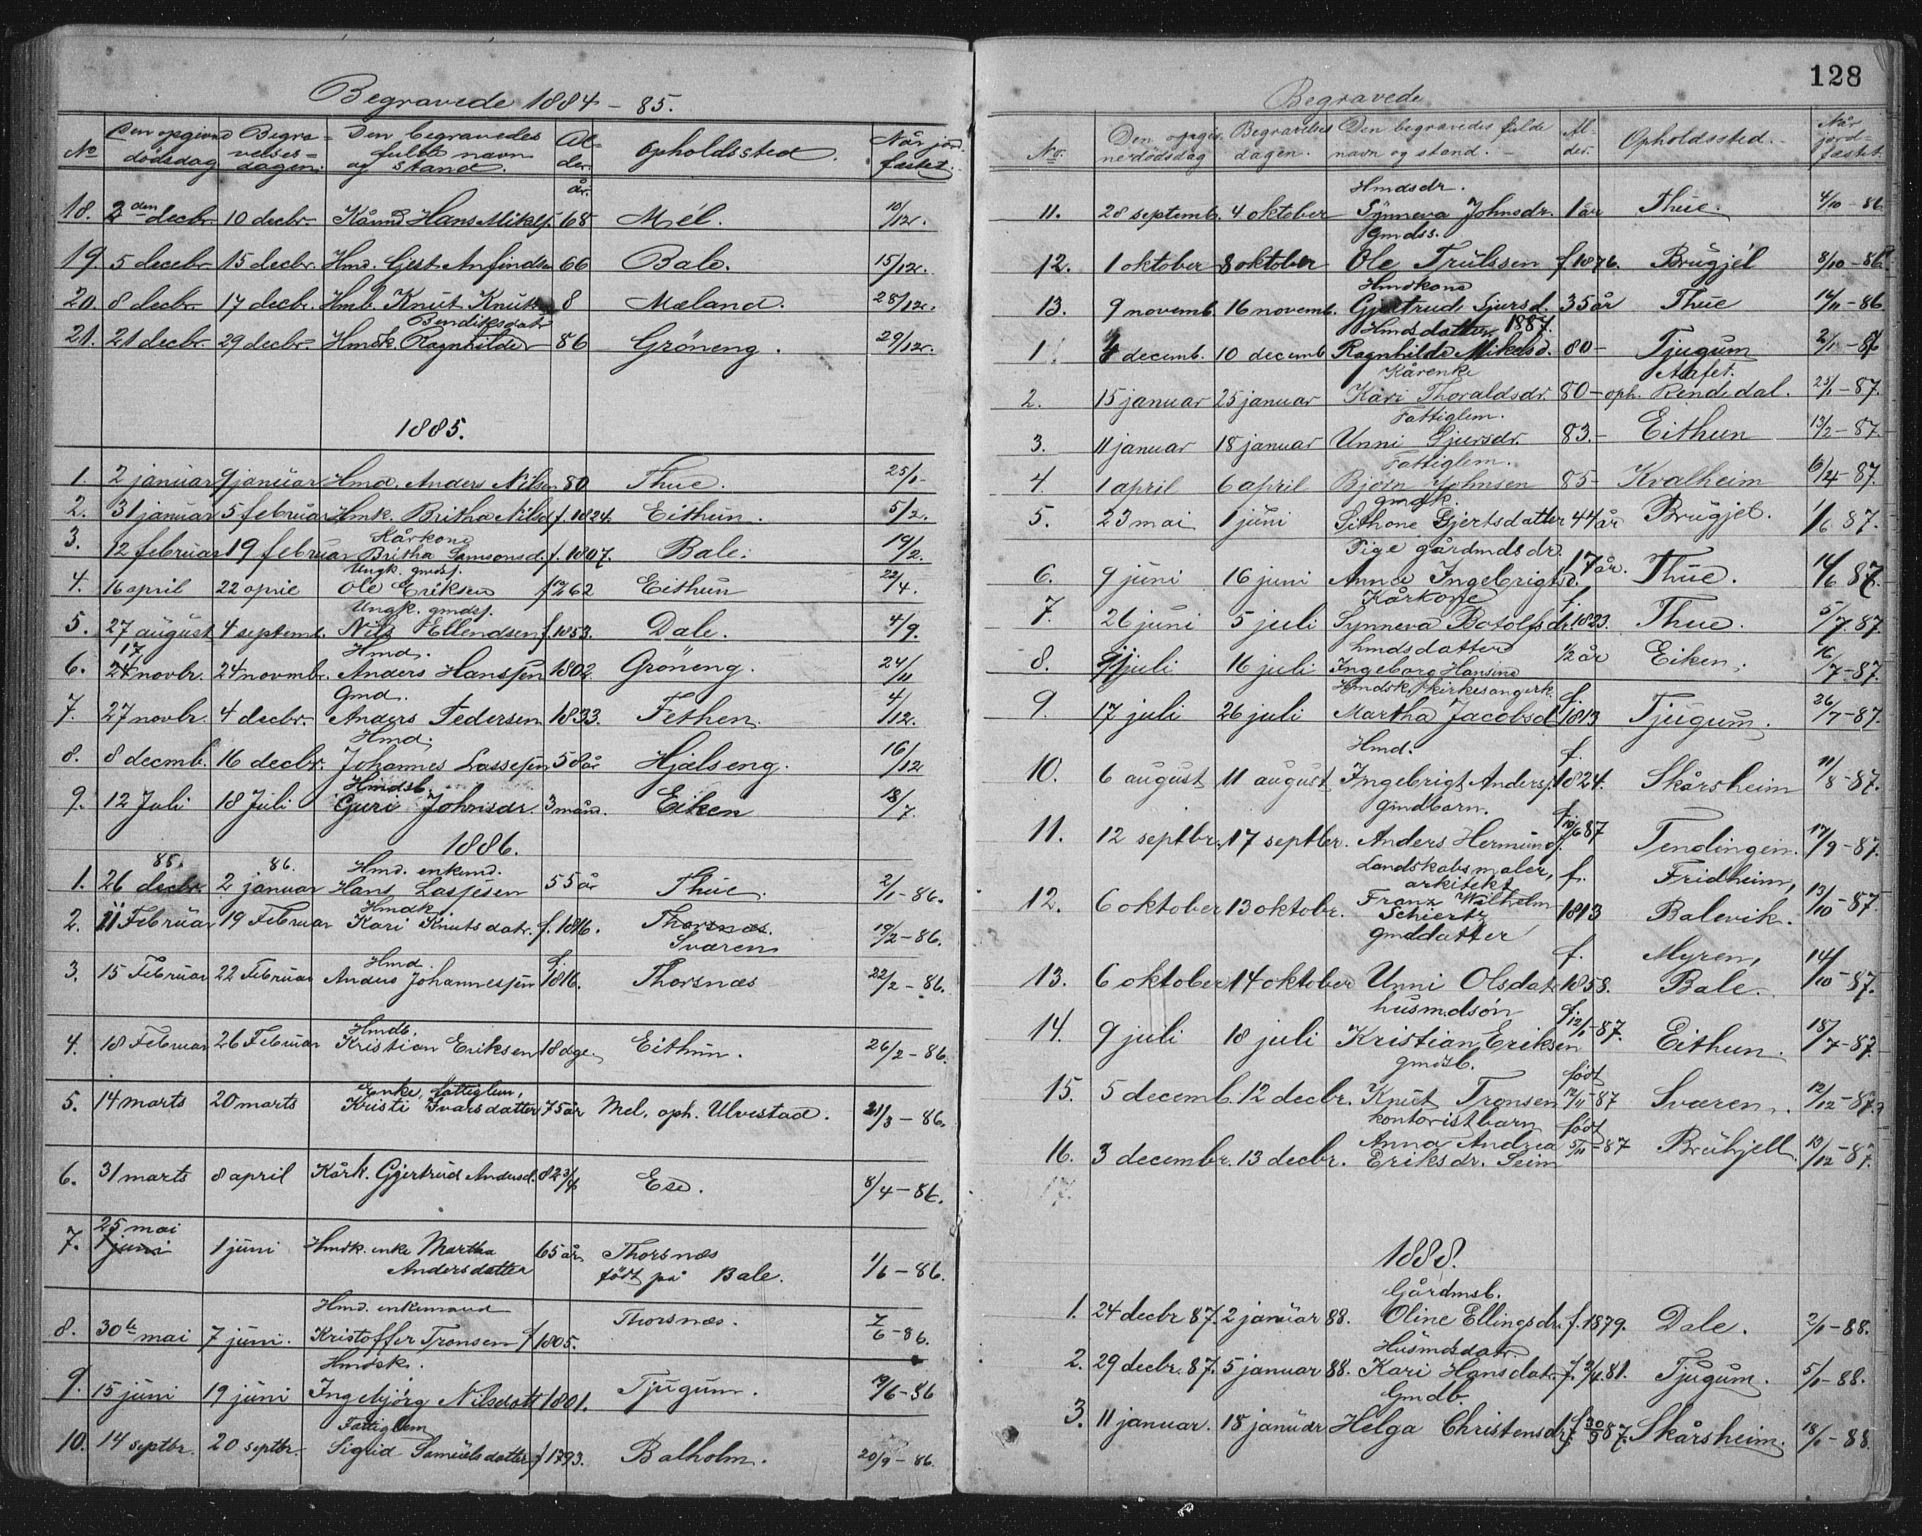 Begravede 1884 - 85.
No Den opgivne dödsdag Begravelses=dagen. Den begravedes fulde navn og stand. Alder. Opholdssted. Når jordfæstet.
år.
18. 2den decbr. 10 decbr. Kårmd Hans Mikelsj. 68 Mél. 10/12.
19 5 decebr 15 decbr. Hmd. Gjest Anfindsen 66 Bale. 15/12.
20. 8 decbr. 17 decbr. Hmb. Knut Knuts 8 Mæland. 28/12.
Bendiksdatr
21. 21 decbr. 29 decbr. Hmdk. Ragnhilde 86 Gröneng. 29/12.
1885.
1. 2 januar 9 januar Hmd. Anders Nilsen 80 Thue. 25/1
2. 31 januar 5 februar Hmk. Britha Nilsd. f. 1824. Eithun. 5/2.
Kårkone
3. 12 februar 19 februar Britha Samsonsd. f. 1807. Bale. 19/2.
Ungk. gmdsj.
4. 16 april 22 april Ole Eriksen 62 Eithun 22/4.
Ungk. gmdsj.
5. 27 august 4 septemb. Nils Ellendsen f. 1853. Dale. 4/9.
17 Hmd.
6. 24 novbr. 24 novmbr. Anders Hansjen 1802 Gröneng. 24/11
Gmd.
7. 27 novbr. 4 decbr. Anders Pedersen 1833. Fethen. 4/12.
Hmd.
8. 8 decmb. 16 decbr. Johannes Lassesjen 58 år Hjelseng. 16/12
Hmdsb.
9. 12 Juli 18 Juli Guri Johnsdr. 3 månd. Eiken 18/7.
1886.
85. 86. Hmd. enkemd.
1. 26 decbr. 2 januar Hans Lasjesen 55 år Thue. 2/1-86.
Hmdk.
2. 11 Februar 19 Februar Kari Knutsdatr. f. 1816. Thorsnæs. 19/2-86.
Sværen
Hmd. f.
3. 15 Februar 22 Februar Anders Johannesjen 1816. Thorsnæs 22/2-86.
Hmdb.
4. 18 Februar 26 Februar Kristian Eriksen 18 dge. Eithun. 26/2-86.
Enke, fattiglem,
5. 14 marts 20 marts Kristi Ivarsdatter 75 år Mel. oph. Ulvestad. 21/3-86.
6. 31 marts 8 april Kårk. Gjertrud Andersd. 82 3/4 Ese. 8/4-86.
25 mai
7. 1 juni 1 juni Hmdk. enke Martha 65 år Thorsnæs 1/6-86.
Andersdatter födt på Bale.
Hmd. enkemand
8. 30te mai 7 juni. Kristoffer Tronsen f 1805. Thorsnæs. 7/6-86.
Hmdsk.
9. 15 juni 19 juni Ingebjörg Nilsdatt 1801. Tjugum. 19/6-86
Fattiglem
10. 14 septbr. 20 septbr. Sigrid Samuelsdatter f 1793. Balholm. 20/9-86.
128
Begravede
No. Den opgivnedödsdag Begravelsesdagen. Den begravedes fulde navn og stand. Alder. Opholdssted. Når jordfæstet.
Hmdsdr.
11. 28 septemb. 4 oktober Synneva Johnsdr. 1 år Thue. 4/10-86
Gmdss.
12. 1 oktober 8 oktober Ole Trulssen f 1876. Brugjél 8/10-86.
Hmdkone
13. 9 novemb. 16 novemb. Gjertrud Sjursd. 35 år Thue 16/11-86
Hmdsdatter 1887.
1 4 decemb. 10 decemb Ragnhilde Mikelsd. 80- Tjugum 2/1-86
Kårenke Atafet.
2. 15 januar 25 januar Kari Thoraldsdr. 80- oph. Rendedal. 25/1-87.
Fattiglem.
3. 11 januar 18 januar Unni Sjursdr. 83.- Eithun 13/2-87.
Fattiglem.
4. 1 april 6 april Björn Johnsen 85- Kvalheim 6/4-87.
gmdk.
5. 23 mai 1 juni Sithone Gjertsdatter 44 år Brugjel. 1/6 87.
Pige gårdmdsdr.
6. 9 juni 16 juni Anna Ingebrigtsd. 17 år. Thue. 16/6 87.
Kårkone f.
7. 26 juni 5 juli Synneva Botolfsdr. 1823. Thue. 5/7.87.
hmdsdatter
8. 9 juli 16 juli Ingeborg Hansine 1/2 år Eiken. 16/7-87.
Hmdsk. kirkesangerk. f.
9. 17 juli 26 juli Martha Jacobsd. 1813 Tjugum. 26/7-87.
Hmd. f.
10. 6 august 11 august Ingebrigt Andersj. 1824. Skårsheim 11/8-87.
Gmdbarn. f.
11. 12 septbr. 17 septber. Anders Hermund 10/6 87 Tendingen. 17/9-87.
Landskabsmaler, arkitekt f. Fridheim,
12. 6 oktober 13 oktobr. Franz Wilhelm Schiertz 1813 Balevik. 13/10-87.
gmddatter
f. Myren,
13. 6 oktober 14 oktober Unni Olsdatr 1858. Bale. 14/10-87.
husmdsön f.
14. 9 juli 18 juli Kristian Eriksen 12/1-87. Eithun. 18/7-87.
gmdsb. födt
15. 5 decemb. 12 decbr. Knut Tronsen 12/11-87 Sværen. 12/12-87.
kontoristbarn födt
16. 3 decembr. 13 decbr. Anna Andrea Eriksdr. Seim 5/11-87 Bruhjell. 13/12-87.
17.
1888.
Gårdmsb.
1. 24 decbr 87. 2 januar 88. Oline Ellingsdr. f. 1879. Dale. 2/1-88.
Husmdsdatr
2. 29 decbr. 87. 5 januar 88. Kari Hansdatr. f. 2/4 81. Tjugum. 5/1-88.
Gmdb.
3. 11 januar. 18 januar Helga Christensdr. f. 30/5 87. Skårsheim. 18/1-88.